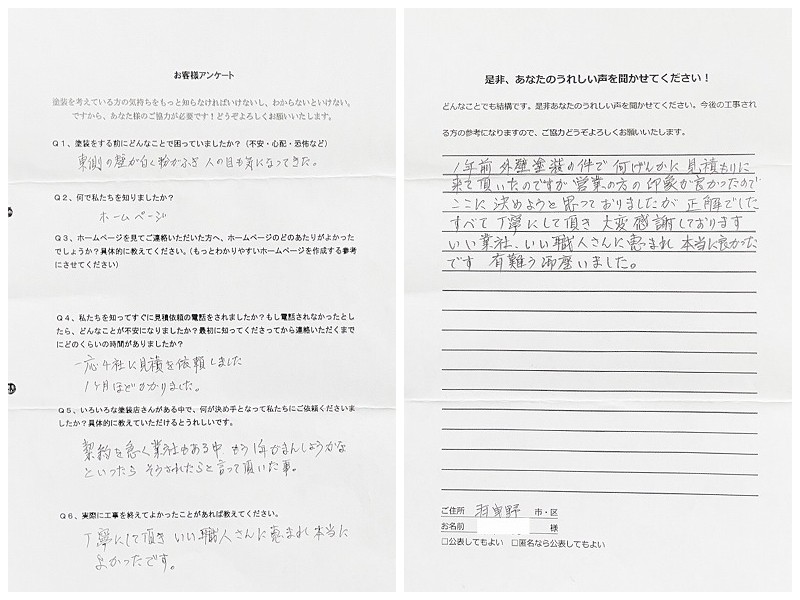 お客様アンケート
塗装を考えている方の気持ちをもっと知らなければいけないし、わからないといけない。
ですから、あなた様のご協力が必要です！どうぞよろしくお願いいたします。
Q１、塗装をする前にどんなことで困っていましたか？（不安・心配・恐怖など）
東側の壁が白く粉がふき 人の目も気になってきた。
Q２、何で私たちを知りましたか？
ホームページ
Q３、ホームページを見てご連絡いただいた方へ、ホームページのどのあたりがよかった
でしょうか？具体的に教えてください。（もっとわかりやすいホームページを作成する参考
にさせてください）
Q４、私たちを知ってすぐに見積依頼の電話をされましたか？もし電話されなかったとし
たら、どんなことが不安になりましたか？最初に知ってくださってから連絡いただくまで
にどのくらいの時間がありましたか？
一応４社に見積を依頼しました
１ヶ月ほどかかりました。
Q５、いろいろな塗装店さんがある中で、何が決め手となって私たちにご依頼くださいま
したか？具体的に教えていただけるとうれしいです。
契約を急ぐ業社もある中 もう１年がまんしようかな
といったら そうされたらと言って頂いた事。
Q６、実際に工事を終えてよかったことがあれば教えてください。
丁寧にして頂き いい職人さんに恵まれ 本当に
よかったです。
是非、あなたのうれしい声を聞かせてください！
どんなことでも結構です。是非あなたのうれしい声を聞かせてください。今後の工事され
る方の参考になりますので、ご協力どうぞよろしくお願いいたします。
１年前 外壁塗装の件で 何げんかに 見積もりに
来て頂いたのですが 営業の方の 印象が良かったので
ここに 決めようと思っておりましたが 正解でした
すべて 丁寧にして頂き 大変感謝しております
いい業社、いい職人さんに恵まれ 本当に良かった
です 有難う御座いました。
ご住所 羽曳野 市・区
お名前 様
□公表してもよい □匿名なら公表してもよい